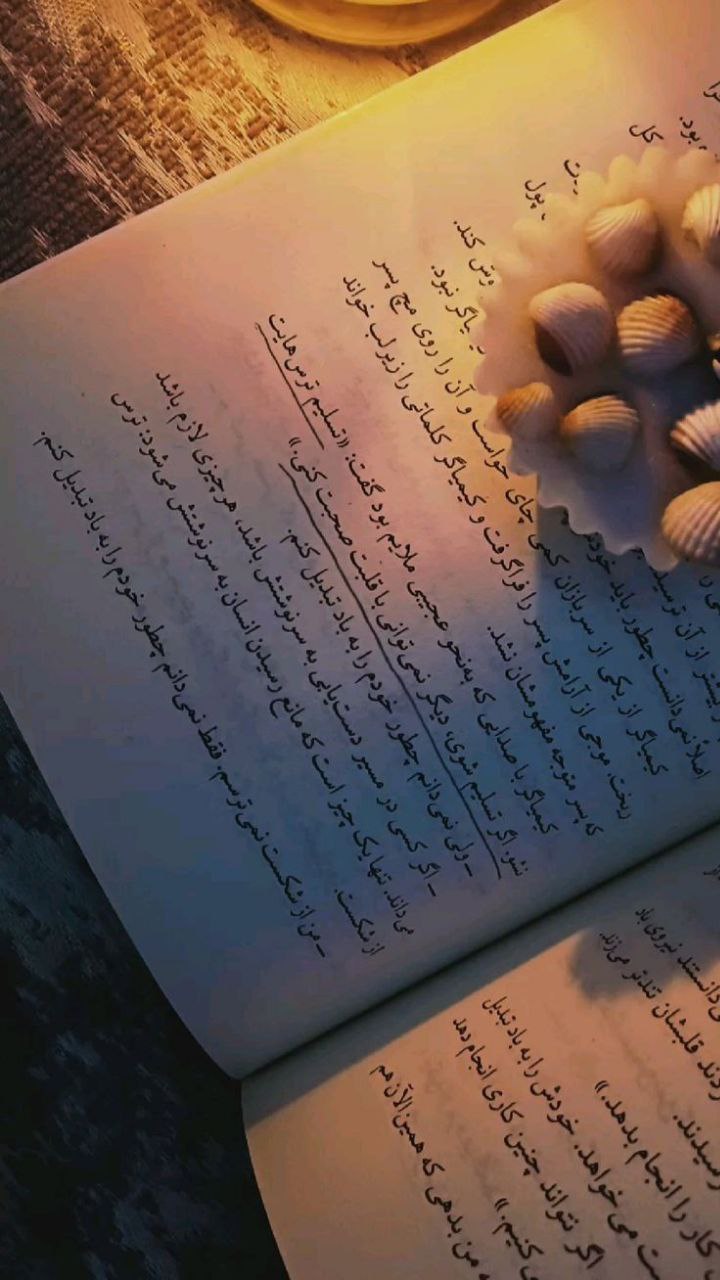 بود.
کل
پول
بیشتر از آن
اصلاً نمی‌دانست چطور باید
کیمیاگر از یکی از سربازان کمی چای خواست و آن را روی مچ پسر
ریخت. موجی از آرامش پسر را فراگرفت و کیمیاگر کلماتی را زیر لب خواند
که پسر متوجه مفهومشان نشد.
کیمیاگر با صدایی که به‌نحو عجیبی ملایم بود گفت: «تسلیم ترس‌هایت
نشو اگر تسلیم شوی، دیگر نمی‌توانی با قلبت صحبت کنی.»
ـ ولی نمی‌دانم چطور خودم را به باد تبدیل کنم.
ـ اگر کسی در مسیر دست‌یابی به سرنوشتش باشد، هر چیزی لازم باشد
می‌داند. تنها یک چیز است که مانع رسیدن انسان به سرنوشتش می‌شود: ترس
از شکست.
ـ من از شکست نمی‌ترسم. فقط نمی‌دانم چطور خودم را به باد تبدیل کنم.
نیروی باد
قلبشان تندتر می‌زند
رسیدند.
کار را انجام بدهد.»
می‌خواهد. خودش را به باد تبدیل
اگر نتواند چنین کاری انجام دهد
کنیم.»
من بدهی که همین الآن هم